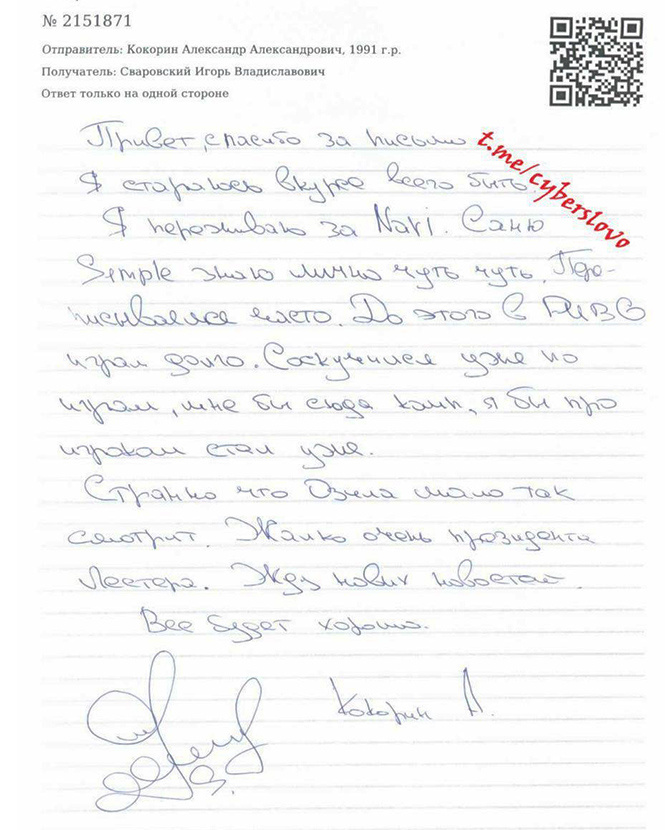 № 2151871
Отправитель: Кокорин Александр Александрович, 1991 г.р.
Получатель: Сваровский Игорь Владиславович
Ответ только на одной стороне
Привет, спасибо за письмо
t.me/cyberslovo
Я стараюсь вкурсе всего быть.
Я переживаю за Navi. Саню
Simple знаю лично чуть чуть. Пере-
писывался часто. До этого в PUBG
играл долго. Соскучился уже по
играм, мне бы сюда комп, я бы про
игроком стал уже.
Странно что Озила мало так
смотрит. Жалко очень президента
Лестера. Жду новых новостей.
Все будет хорошо.
Кокорин А.